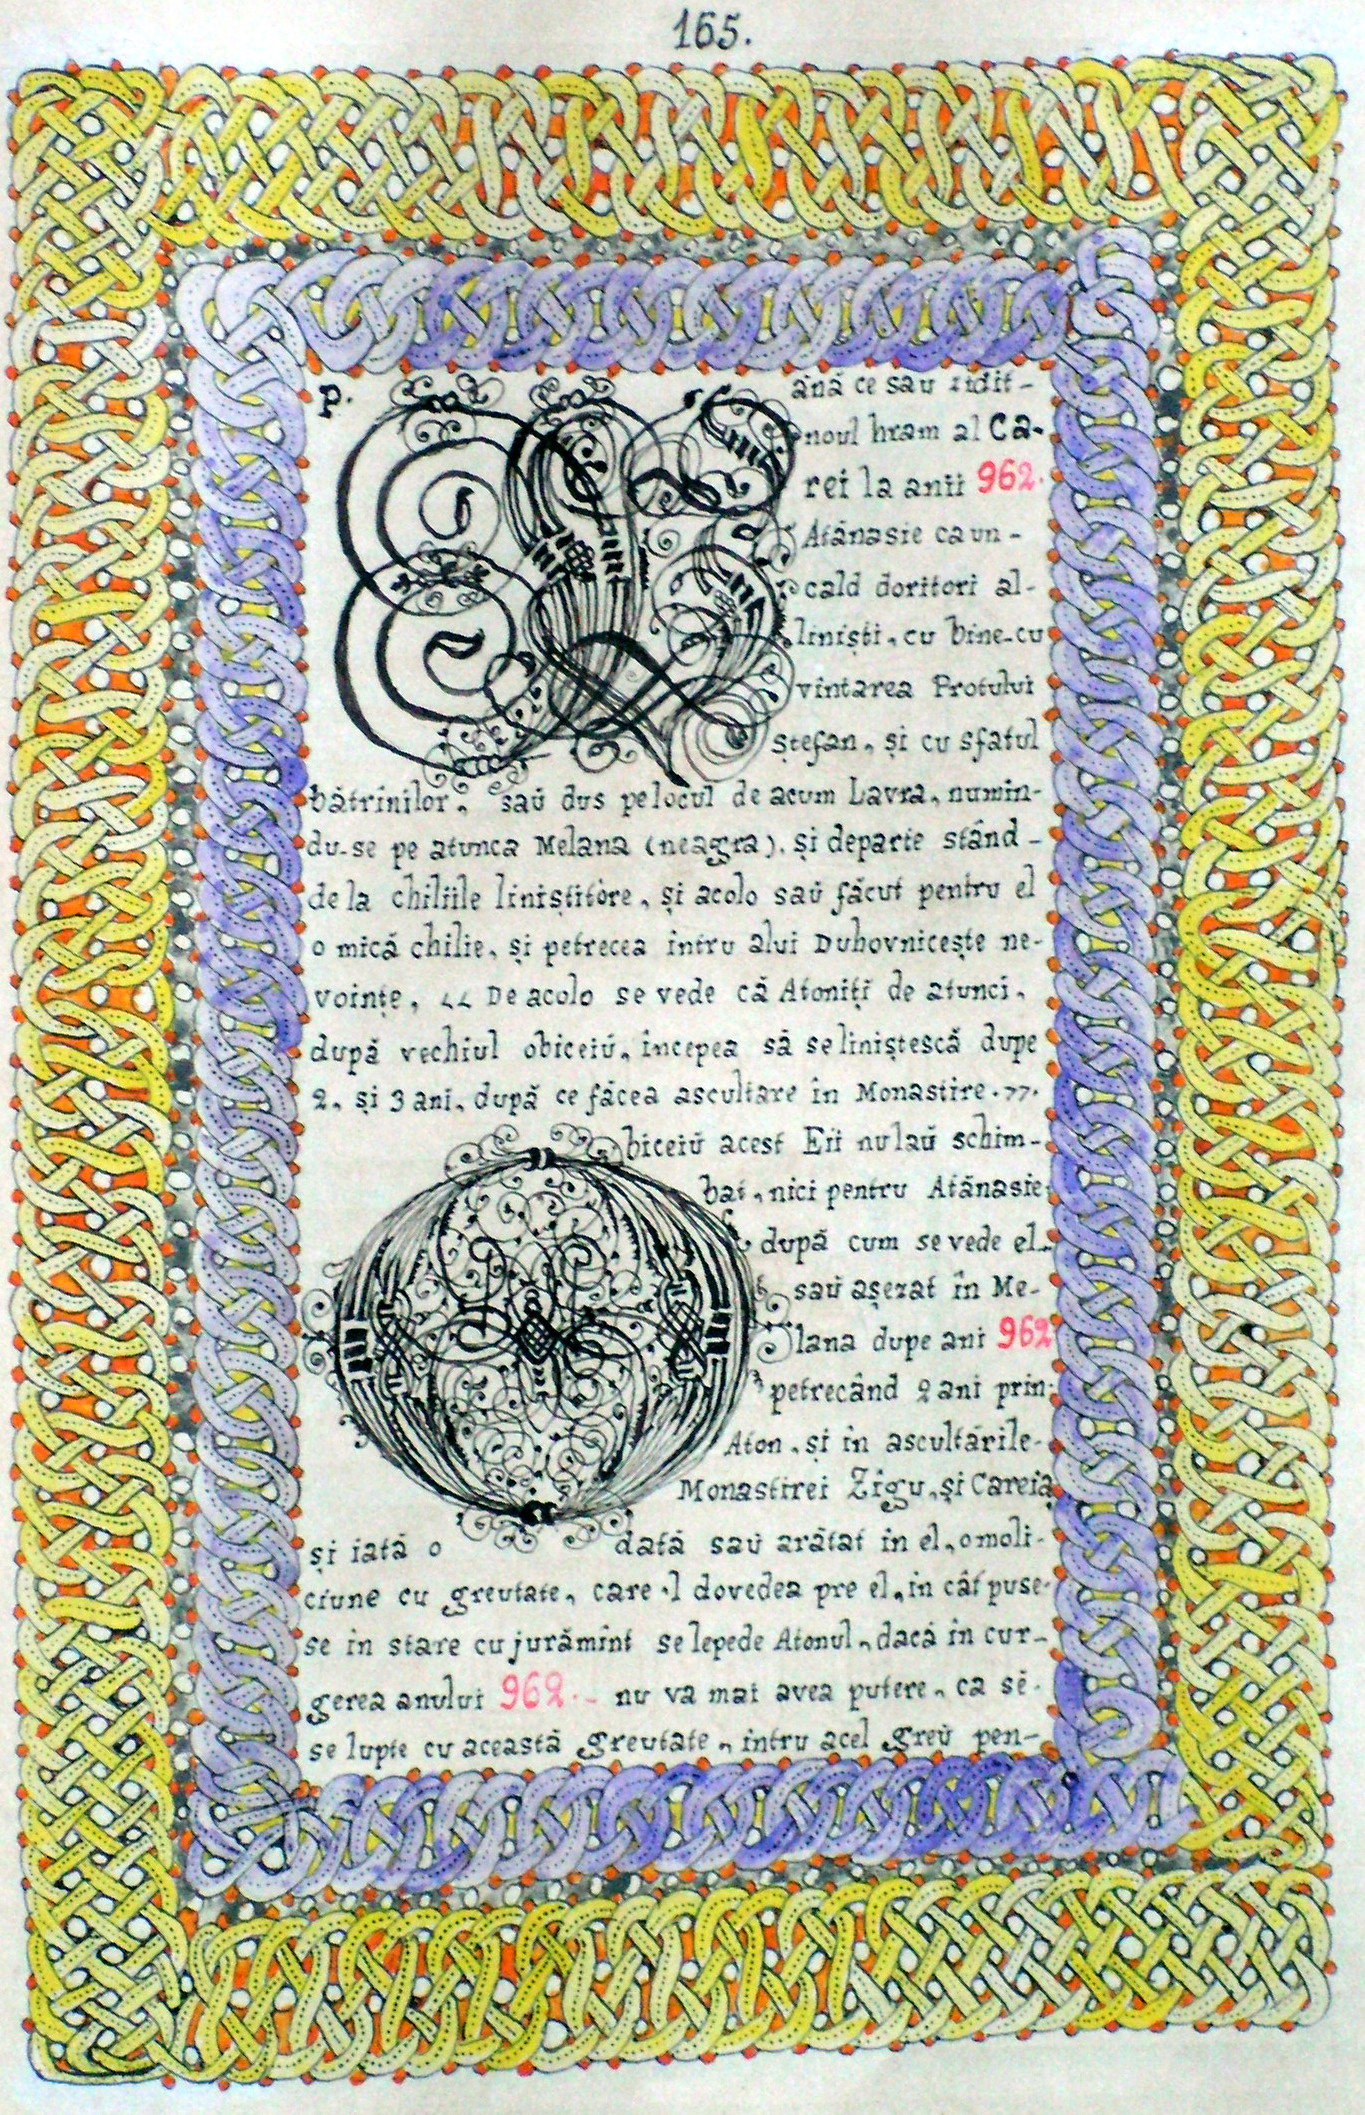 165.
P.
ană ce sau zidit-
noul hram al Ca-
rei la anii 962.
Atănasie ca un-
cald doritori al-
liniști, cu bine-cu
vintarea Protului
ștefan, și cu sfatul
bătrînilor, său dus pe locul de acum Lavra, numin-
du-se pe atunca Melana (neagra), și departe stând-
de la chiliile liniștitòre, și acolo saŭ făcut pentru el
o mică chilie, și petrecea intru alui Duhovnicește ne-
voințe, „ De acolo se vede că Atoniți de atunci,
după vechiul obiceiŭ, începea să se liniștescă dupe
2, și 3 ani, după ce făcea ascultare in Monastire.”.
Obiceiŭ acest Eii nu laŭ schim-
bat, nici pentru Atănasie,
după cum se vede el-
saŭ așezat în Me-
lana dupe ani 962
petrecând 2 ani prin
Aton, și in ascultările-
Monastirei Zigu, și Careia
și iată o dată saŭ arătat in el, o moli-
ciune cu greutate, care ·l dovedea pre el, in cât puse-
se in stare cu jurămînt se lepede Atonul, dacă în cur-
gerea anului 962.- nu va mai avea putere, ca sĕ-
se lupte cu această greutate, intru acel greŭ pen-